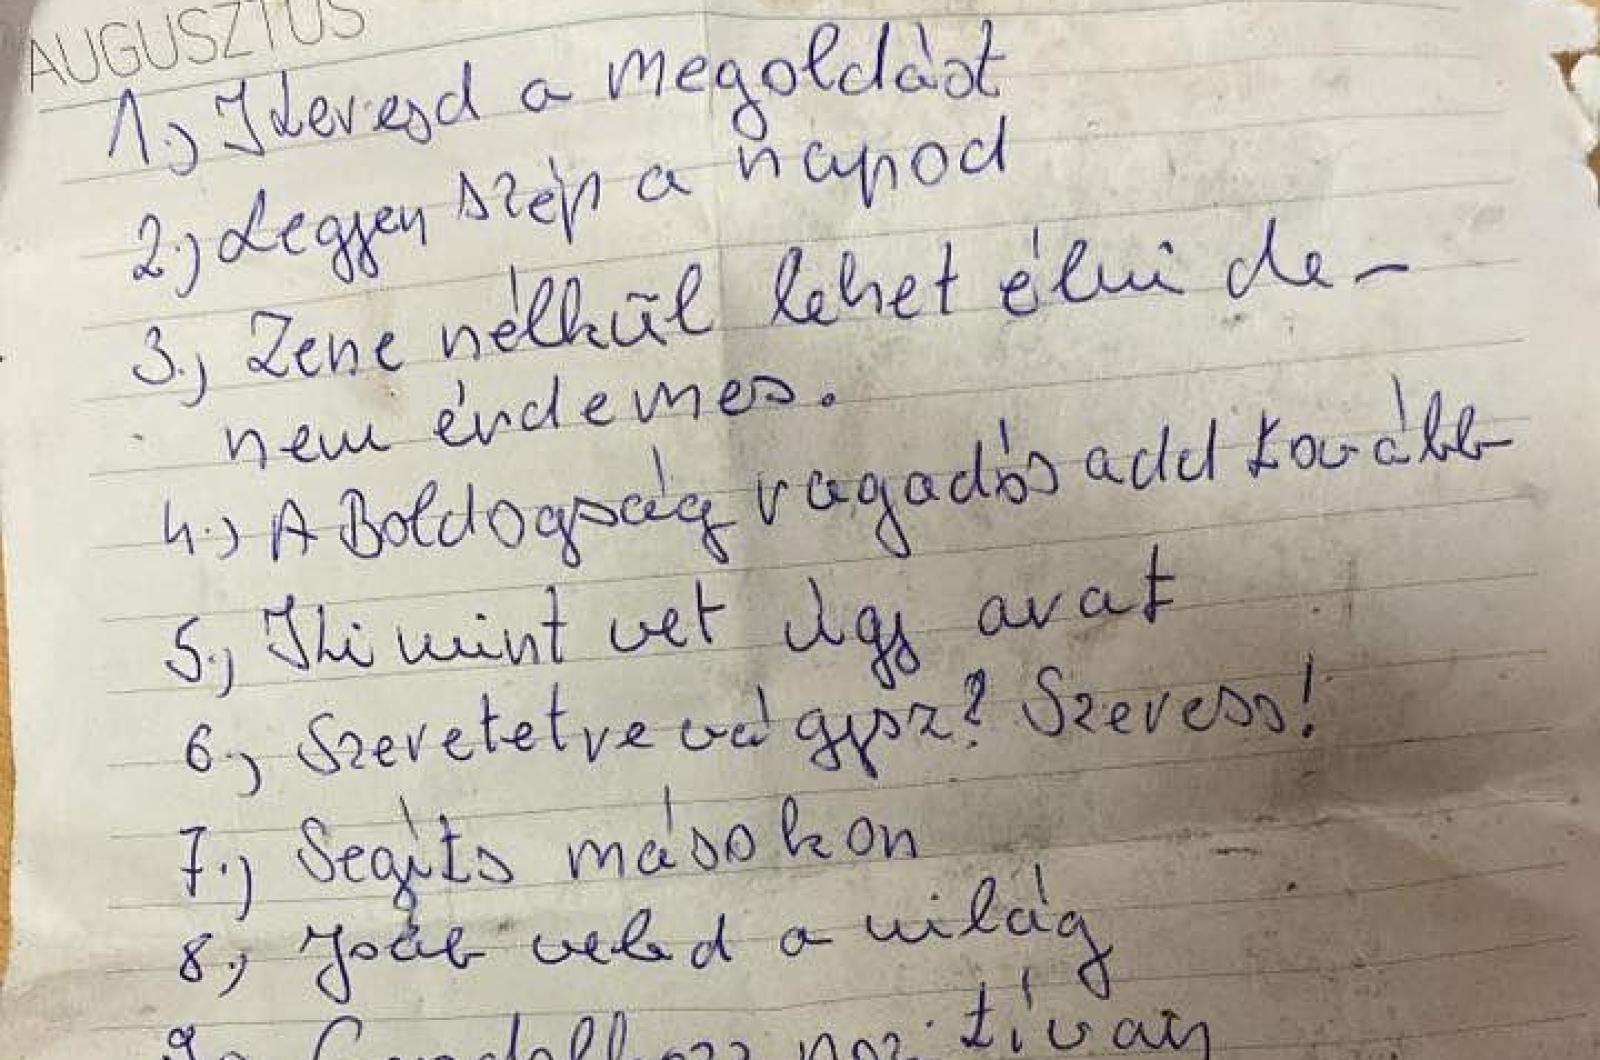 AUGUSZTUS
1.) Keresd a megoldást
2.) Legyen szép a napod
3.) Zene nélkül lehet élni de -
nem érdemes.
4.) A Boldogság ragadós add tovább
5.) Ki mint vet úgy arat
6.) Szeretetre vágysz? Szeress!
7.) Segíts másokon
8.) Jobb veled a világ
9. Gondolkozz pozitívan